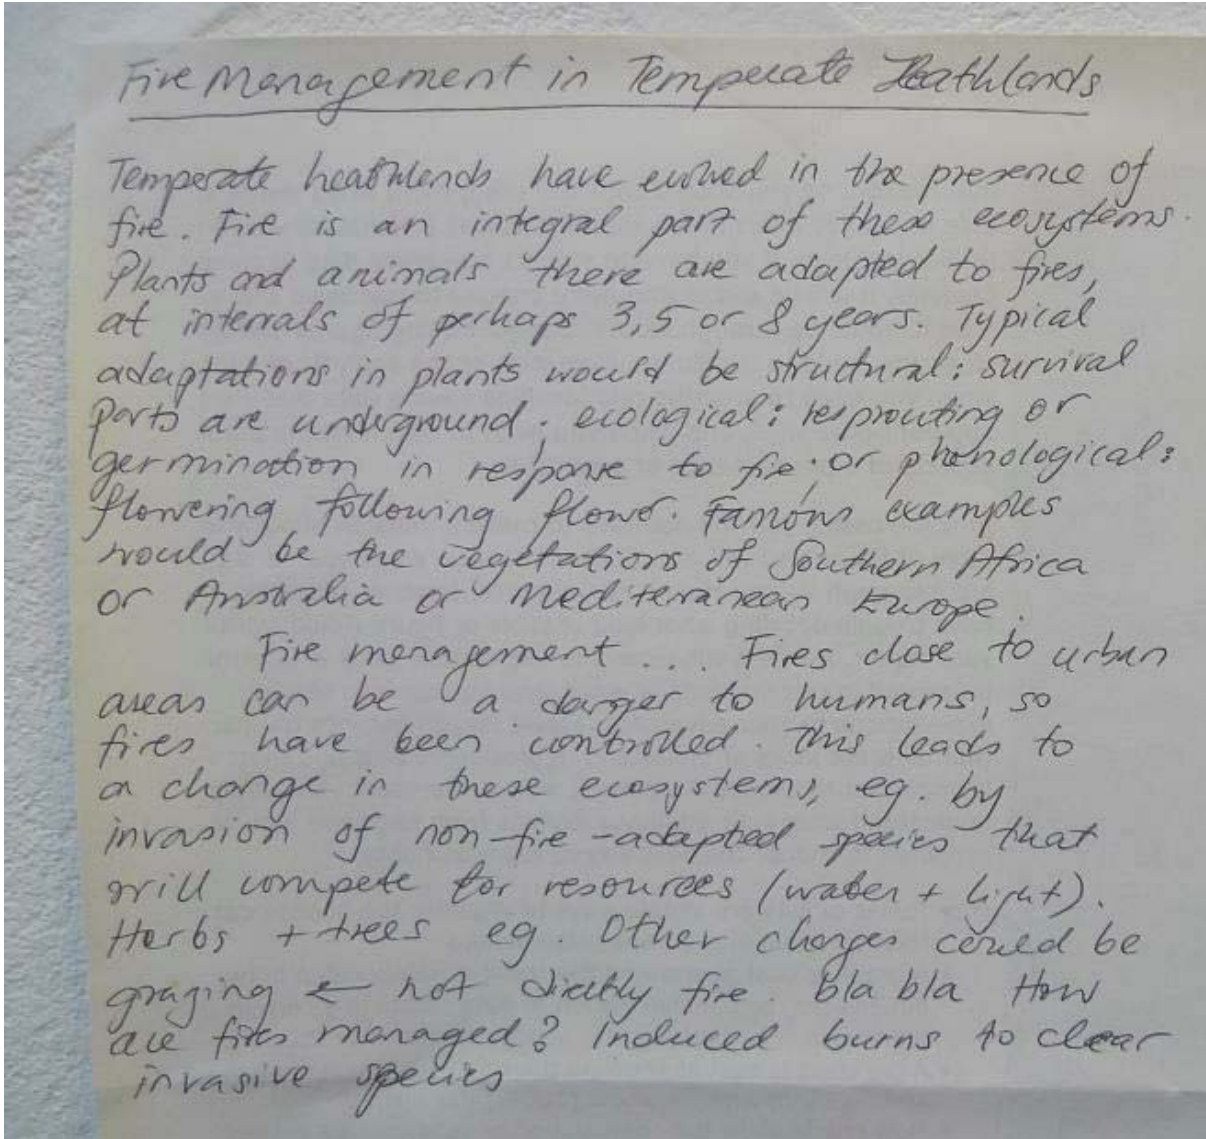 Fire Management in Temperate Heathlands
Temperate heathlands have evolved in the presence of
fire. Fire is an integral part of these ecosystems.
Plants and animals there are adapted to fires,
at intervals of perhaps 3, 5 or 8 years. Typical
adaptations in plants would be structural: survival
parts are underground; ecological: resprouting or
germination in response to fire; or phenological:
flowering following flower. Famous examples
would be the vegetations of Southern Africa
or Australia or Mediterranean Europe.
Fire management ... Fires close to urban
areas can be a danger to humans, so
fires have been controlled. This leads to
a change in these ecosystems, eg. by
invasion of non-fire-adapted species that
will compete for resources (water + light).
Herbs + trees eg. Other changes could be
grazing ← not directly fire. bla bla How
are fires managed? Induced burns to clear
invasive species